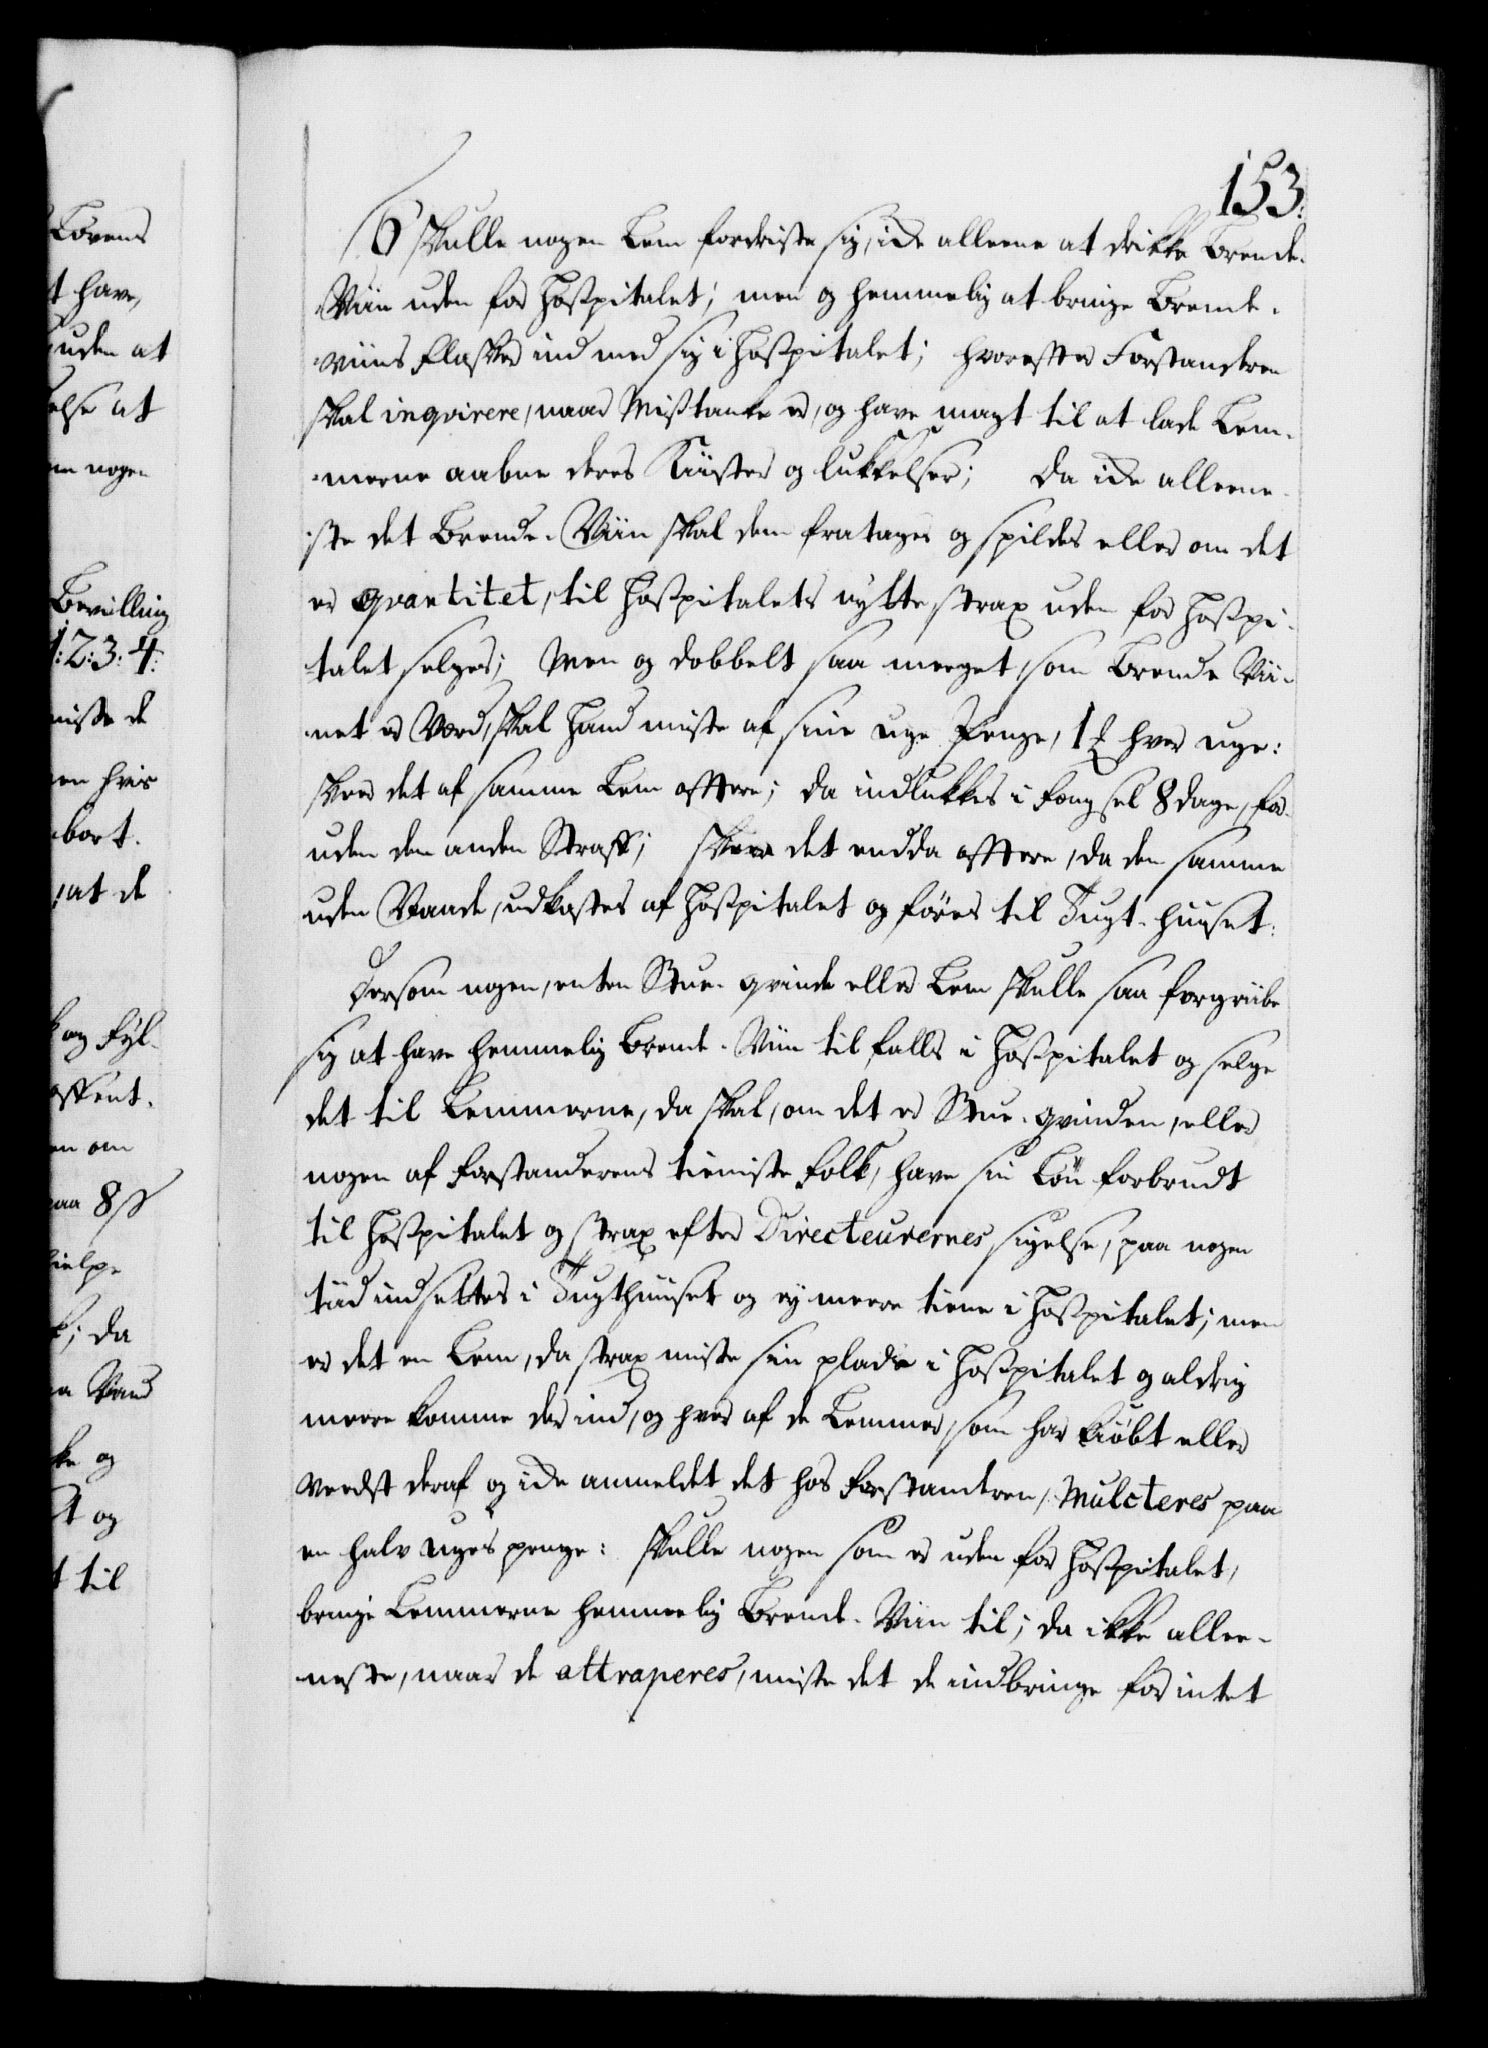 Lovens
t have,
uden at
else at
em nogen
Bevilling
1:2:3:4:
miste de
en hvis
bort.
at de
og Fyl-
offent.
en om
paa 8 s
hielpe
; da
a Vand
ke og
t og
t til
153.
6 Skulle nogen Lem fordriste sig, icke alleene at drikke Brende-
Viin uden for Hospitalet; men og hemmelig at bringe Brende-
viins Flasker ind med sig i Hospitalet; hvorefter Forstanderen
skal inqvirere, naar Mistanke er, og have magt til at lade Lem-
merne aabne deres Kiister og lukkelser; Da icke alleene-
ste det Brende-Viin skal dem fratages og spildes eller om det
er qvantitet, til Hospitalets nytte strax uden for Hospi-
talet selges; Men og dobbelt saa meeget, som Brende Vii-
net er Værd, skal hand miste af sine uge Penge, 1 ℔ hver uge:
skeer det af samme Lem offtere; da indlukkes i Fengsel 8 dage, for-
uden den anden Straff; skeer det endda offtere, da den samme
uden Naade, udkastes af Hospitalet og føres til Tugt-huuset:
Dersom nogen, enten Stue-qvinde eller Lem skulle saa forgriibe
sig at have hemmelig Brende-Viin til falls i Hospitalet og selge
det til Lemmerne, da skal, om det er Stue-qvinden, eller
nogen af Forstanderens tieniste Folk, have sin Løn forbrudt
til Hospitalet og strax efter Directeurernes sigelse, paa nogen
tiid indsettes i Tugthuuset og ey meere tiene i Hospitalet; men
er det en Lem, da strax miste sin plads i Hospitalet og aldrig
meere komme der ind, og hver af de Lemmer, som har kiøbt eller
veedst deraf og icke anmeldet det hos Forstanderen, Mulcteres paa
en halv uges penge: skulle nogen som er uden for Hospitalet,
bringe Lemmerne hemmelig Brende-Viin til; da ikke allee-
neste, naar de attraperes, miste det de indbringe for intet